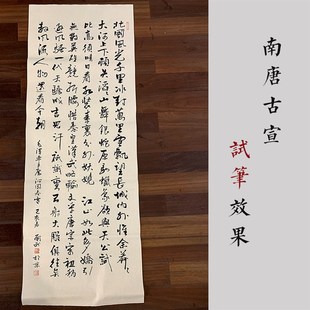 北國風光千里冰封萬里雪飄望長城内外惟余莽莽
大河上下頓失滔滔山舞銀蛇原馳蠟象欲與天公試
比高須晴日看紅裝素裹分外妖嬈 江山如此多嬌引
無數英雄競折腰惜秦皇漢武略輸文采唐宗宋祖稍
遜風騷一代天驕成吉思汗祇識彎弓射大雕俱往矣
數風流人物還看今朝
沁園春雪
南唐古宣
試筆效果